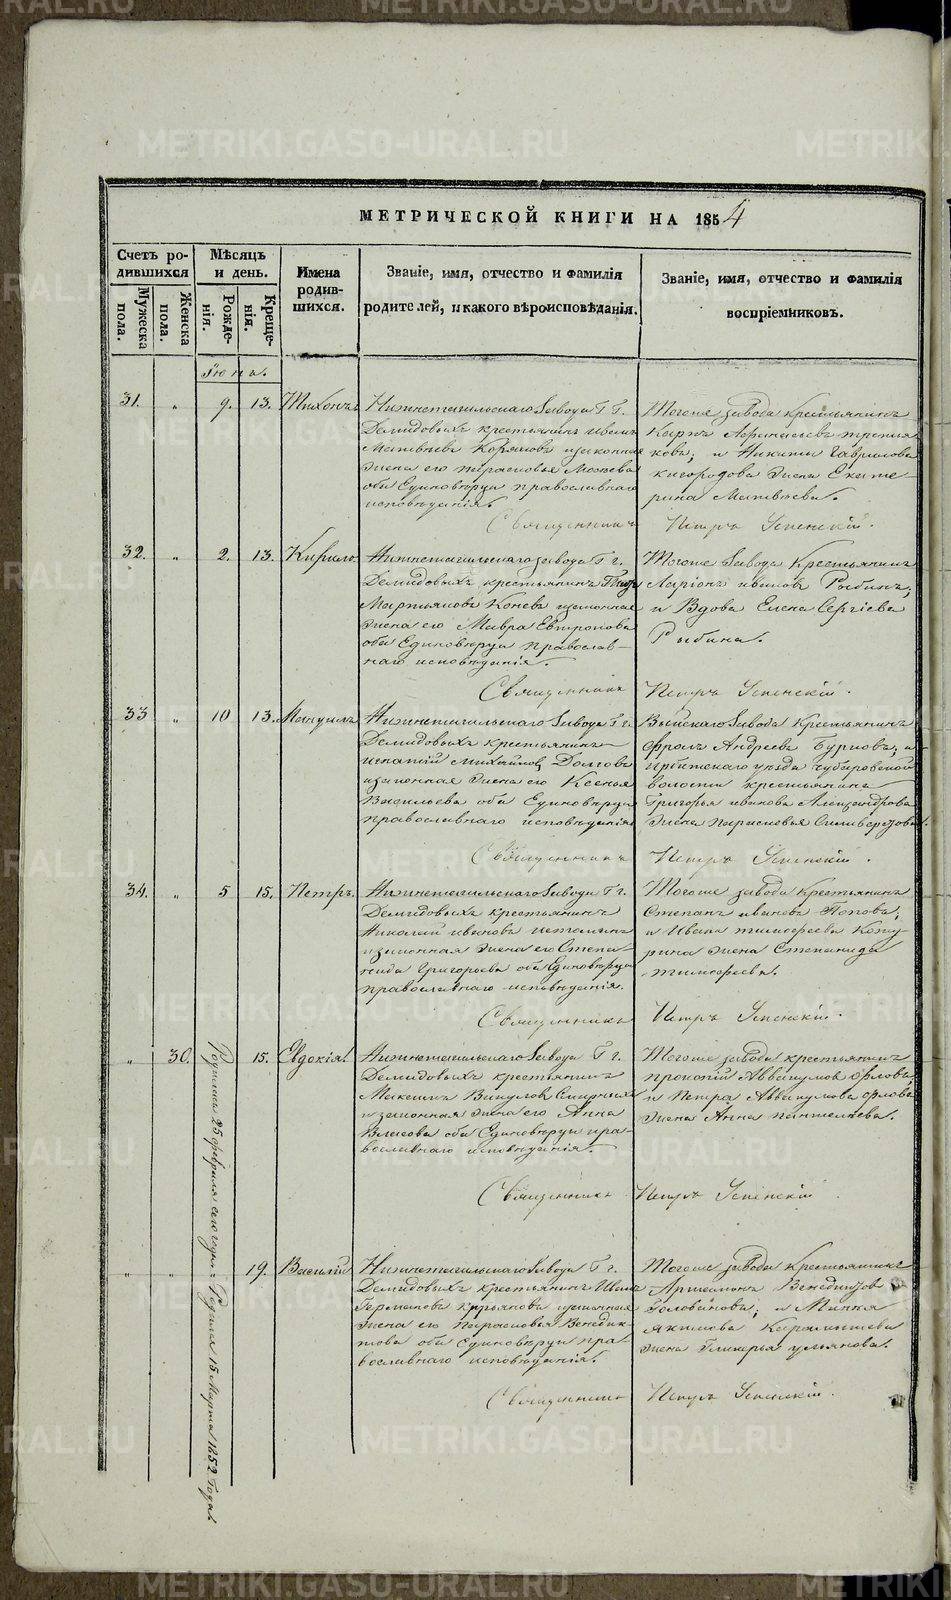 МЕТРИЧЕСКОЙ КНИГИ НА 1854
Счетъ ро-
дившихся
Мужеска
пола.
Женска
пола.
Мѣсяцъ
и день.
Рожде-
нія.
Креще-
нія.
Имена
родив-
шихся.
Званіе, имя, отчество и фамилія
родителей, и какого вѣроисповѣданія.
Званіе, имя, отчество и фамилія
воспріемниковъ.
Іюнь.
31. " 9. 13. Тихонъ
Нижнетагильскаго Завода Г. г.
Демидовыхъ крестьянинъ Иванъ
Матвѣевъ законная
жена его Парасковья
оба Единовѣрцы православнаго
исповѣданія.
Тогоже завода крестьянинъ
Карпъ Афанасьевъ
и Никиты Гаврилова
жена Екате-
рина Матвѣева.
Священникъ Петръ Успенскій.
32. " 2. 13. Кирило
Нижнетагильскаго завода Г. г.
Демидовыхъ крестьянинъ
Мартьяновъ Коневъ законная
жена его Мавра
оба Единовѣрцы православ-
наго исповѣданія.
Тогоже Завода Крестьянинъ
Ларіонъ Ивановъ Рыбинъ,
и Вдова Елена Сергіева
Рыбина.
Священникъ Петръ Успенскій.
33 " 10 13. Мануилъ
Нижнетагильскаго Завода Г. г.
Демидовыхъ крестьянинъ
Игнатій Михайловъ Долговъ
законная жена его Ксенья
Васильева оба Единовѣрцы
православнаго исповѣданія
Выйскаго Завода Крестьянинъ
Фролъ Андреевъ Бурковъ, и
Ирбитскаго уѣзда
волости крестьянина
Григорья Иванова Александрова
жена Парасковья
Священникъ Петръ Успенскій.
34. " 5 15. Петръ.
Нижнетагильскаго Завода Г. г.
Демидовыхъ крестьянинъ
Николай Ивановъ
законная жена его Степа-
нида Григорьева оба Единовѣрцы
православнаго исповѣданія.
Тогоже завода крестьянинъ
Степанъ Ивановъ Поповъ,
и Ивана Тимофеева
жена Степанида
Тимофеева.
Священникъ Петръ Успенскій.
" 30. Родилась 25 февраля сего года 15. Евдокія.
Нижнетагильскаго Завода Г. г.
Демидовыхъ крестьянинъ
Максимъ Викуловъ
законная жена его Анна
Власова оба Единовѣрцы пра-
вославнаго исповѣданія.
Тогоже завода крестьянинъ
Прокопій Аввакумовъ Орловъ,
и Петра Аввакумова Орлова
жена Анна Пантелѣева.
Священникъ Петръ Успенскій
" " Родился 15 Марта 1852 Года. 19. Василій
Нижнетагильскаго Завода Г. г.
Демидовыхъ крестьянинъ Иванъ
Германовъ законная
жена его Парасковья Венедик-
това оба Единовѣрцы пра-
вославнаго исповѣданія.
Тогоже завода Крестьянинъ
Венедиктовъ
и
Якимова
жена Гликерья Ульянова.
Священникъ Петръ Успенскій.
METRIKI.GASO-URAL.RU